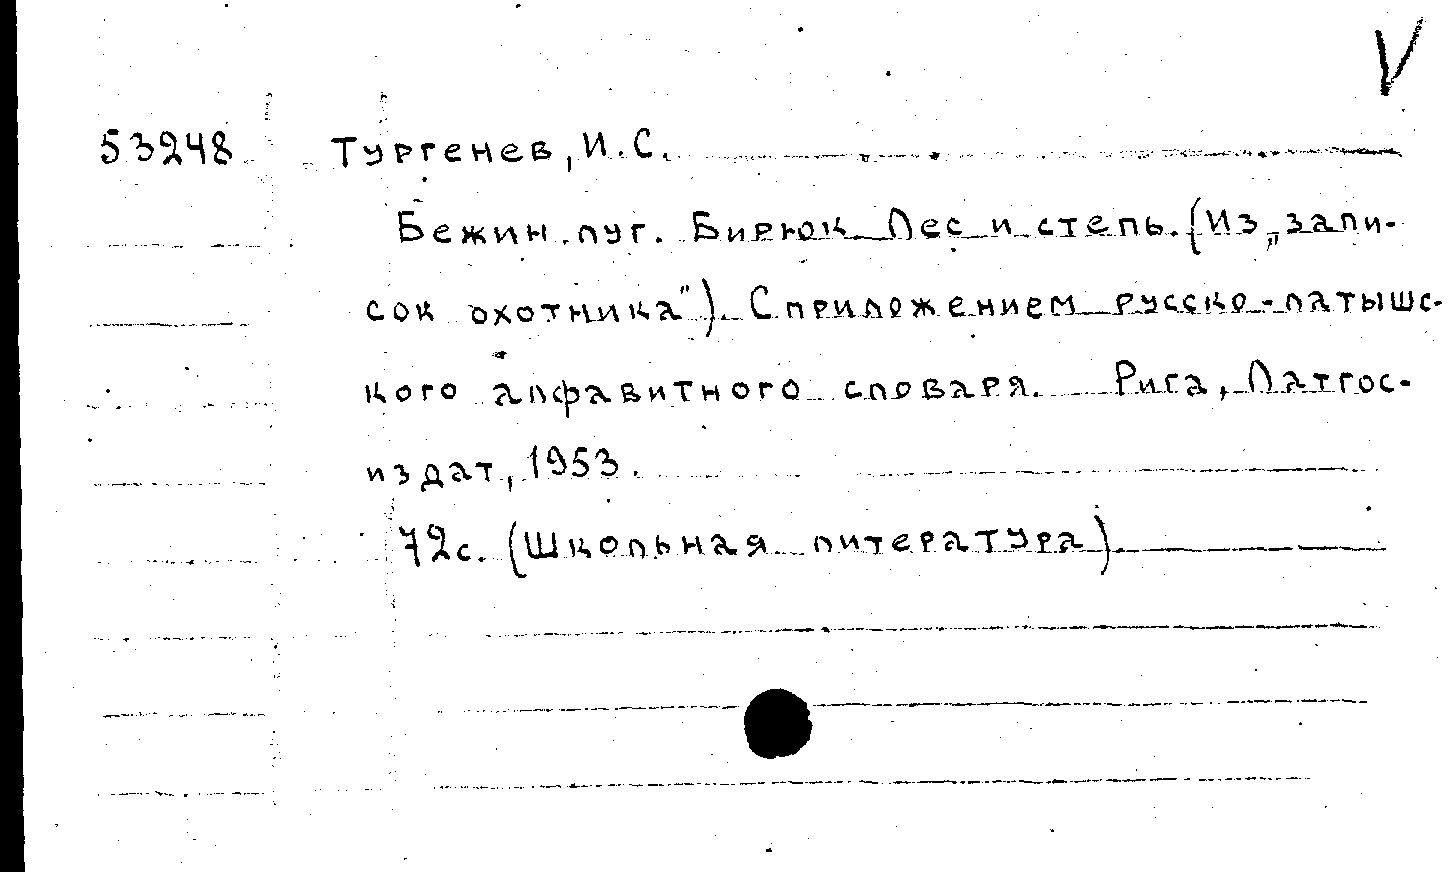 V
53248 Тургенев, И.С.
Бежин луг. Бирюк. Лес и степь. (Из „запи-
сок охотника"). С приложением русско-латышс-
кого алфавитного словаря. Рига, Латгос-
издат, 1953.
72с. (Школьная литература).